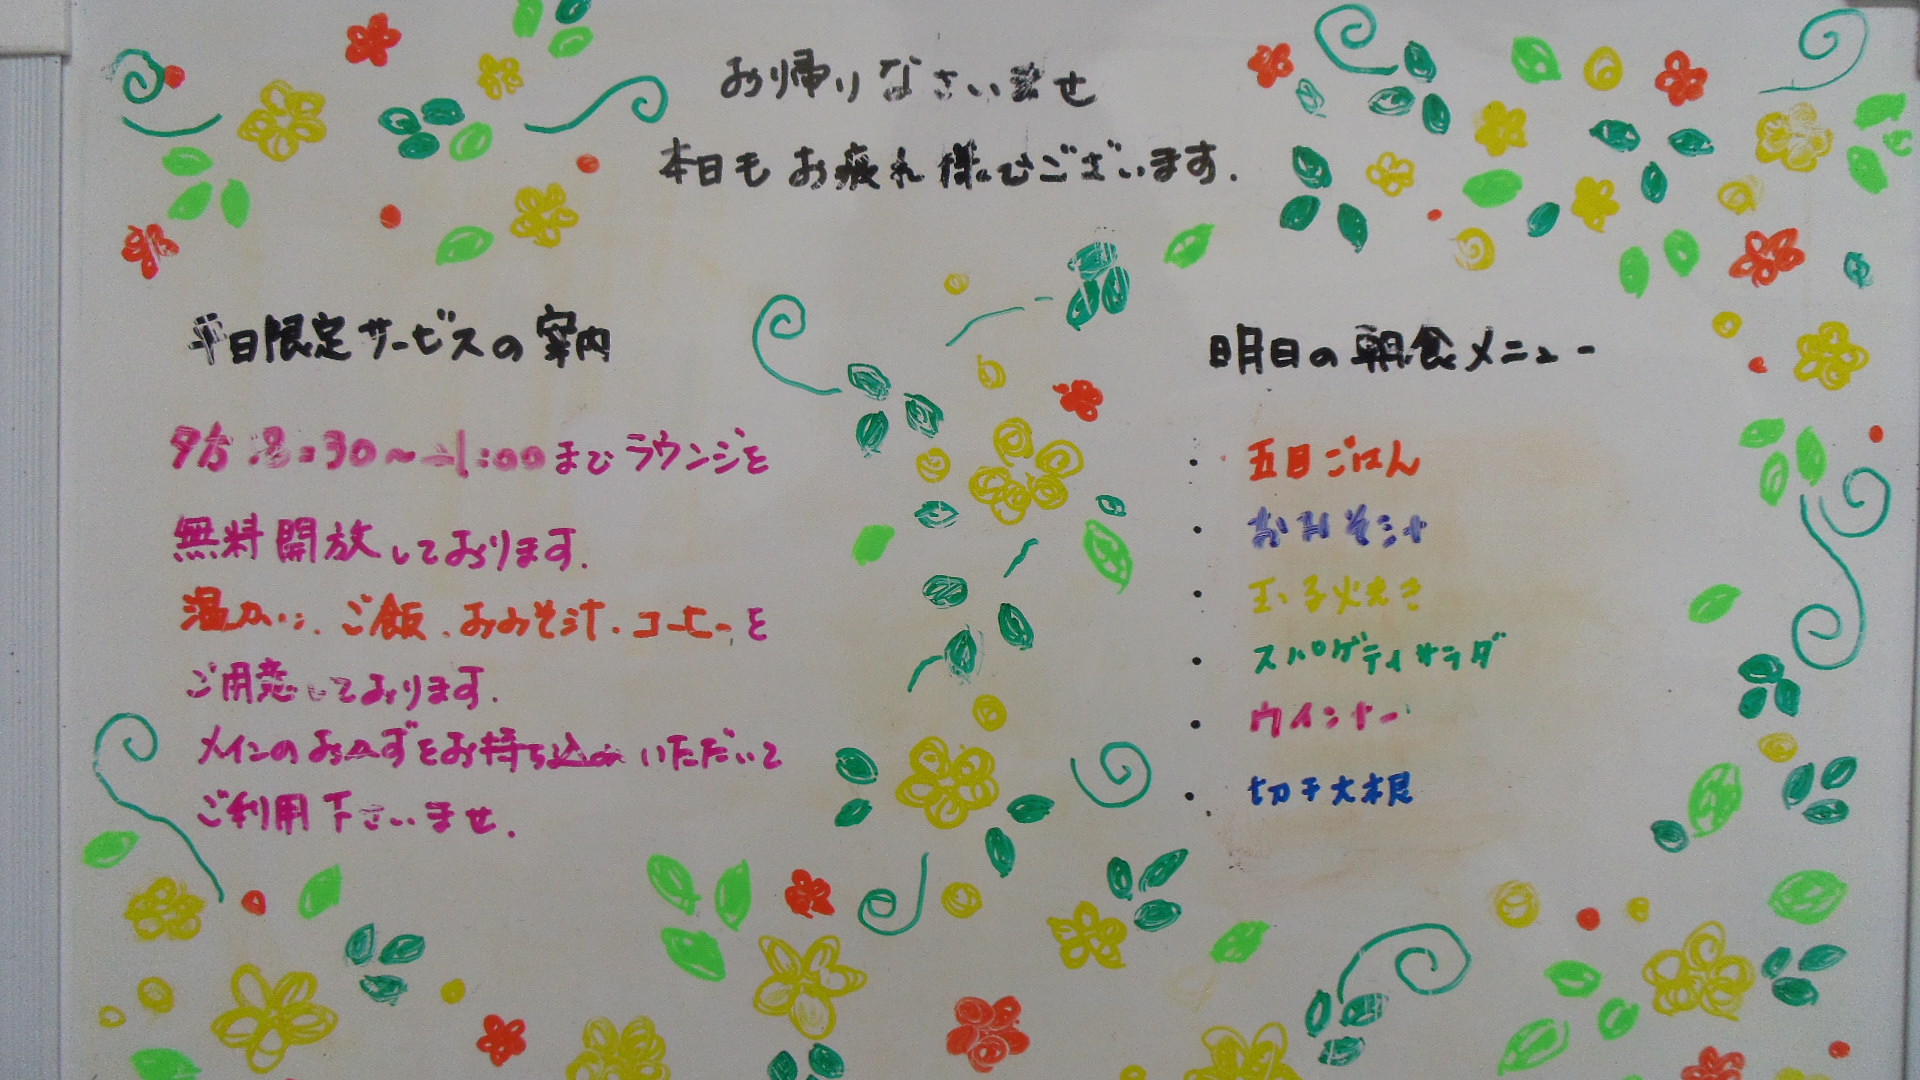 お帰りなさいませ
本日もお疲れ様でございます.
平日限定サービスの案内
夕方 :30~ :00までラウンジを
無料開放しております.
温かい、ご飯、おみそ汁、コーヒーを
ご用意しております.
メインのおかずをお持ち込みいただいて
ご利用下さいませ.
明日の朝食メニュー
・ 五目ごはん
・ おみそ汁
・ 玉子焼き
・ スパゲティサラダ
・ ウインナー
・ 切干大根